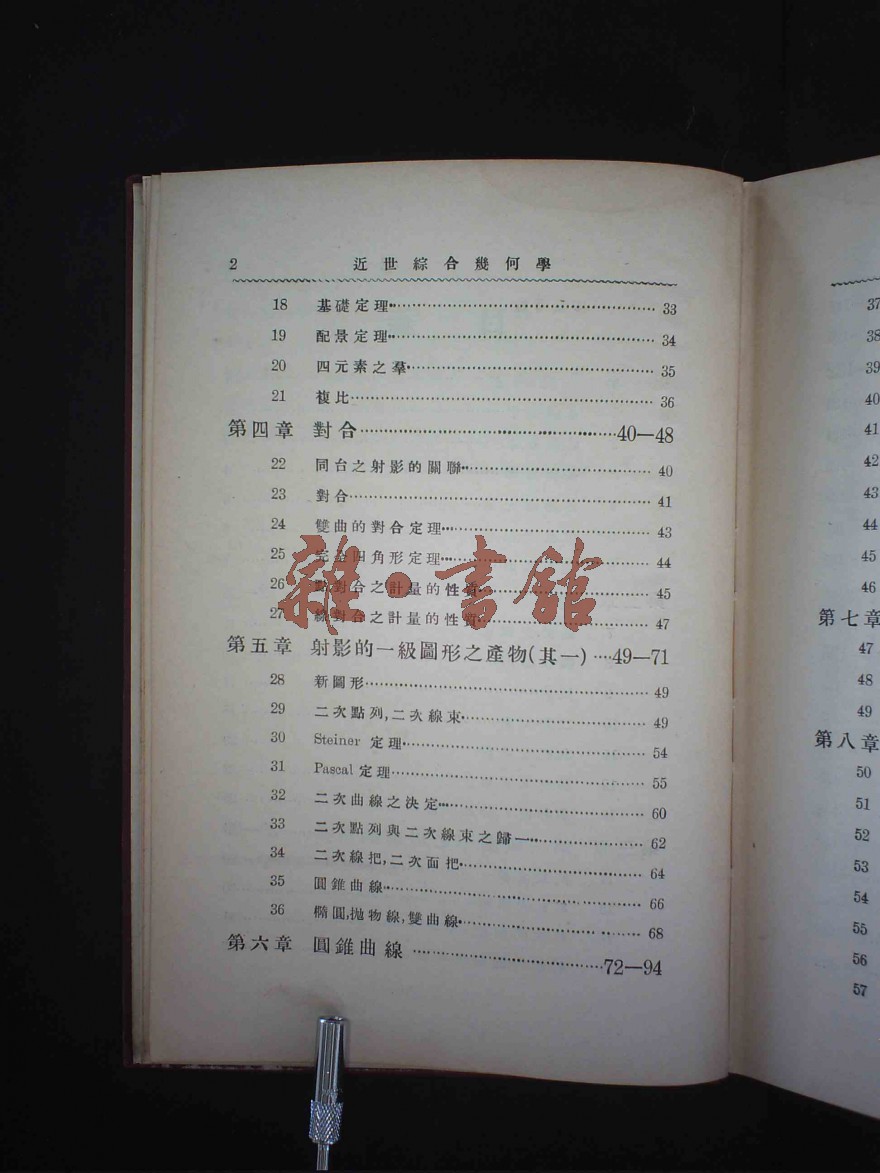 2 近世綜合幾何學
18 基礎定理 33
19 配景定理 34
20 四元素之羣 35
21 複比 36
第四章 對合 40—48
22 同台之射影的關聯 40
23 對合 41
24 雙曲的對合定理 43
25 完全四角形定理 44
26 點對合之計量的性質 45
27 線對合之計量的性質 47
雜·書館
第五章 射影的一級圖形之產物(其一) 49—71
28 新圖形 49
29 二次點列,二次線束 49
30 Steiner 定理 54
31 Pascal 定理 55
32 二次曲線之決定 60
33 二次點列與二次線束之歸一 62
34 二次線把,二次面把 64
35 圓錐曲線 66
36 橢圓,拋物線,雙曲線 68
第六章 圓錐曲線 72—94
37
38
39
40
41
42
43
44
45
46
第七章
47
48
49
第八章
50
51
52
53
54
55
56
57